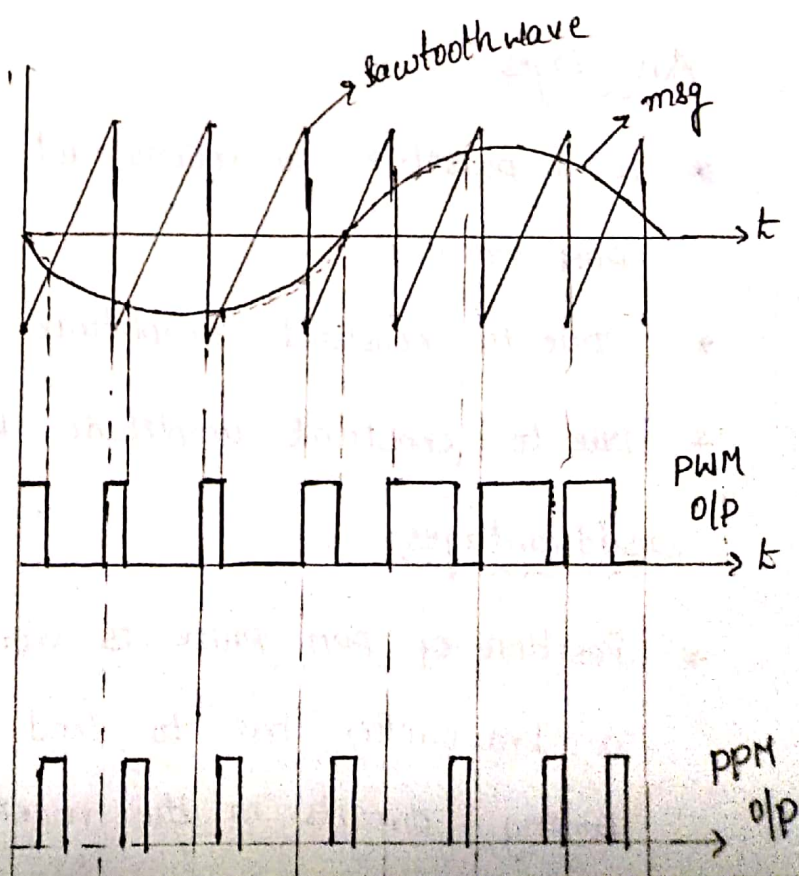 sawtooth wave
msg
t
PWM
O/P
t
PPM
O/P